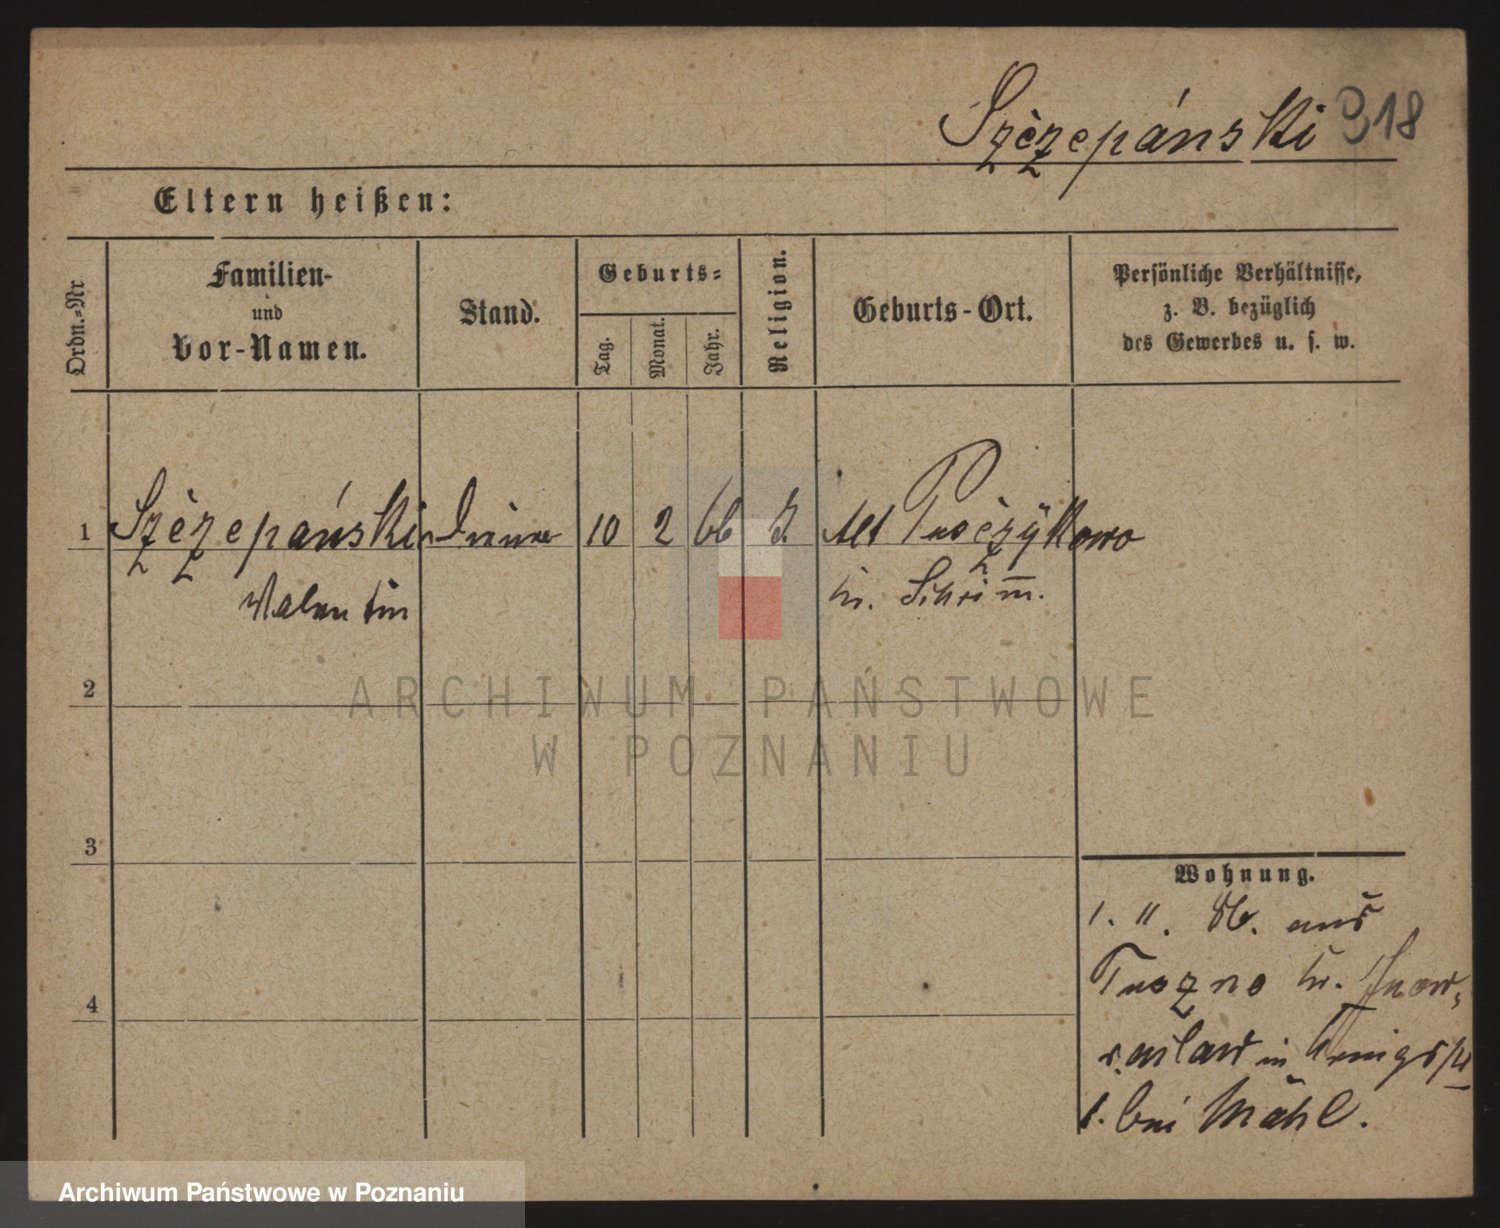 Szczepański 318
Eltern heißen:
Ordn.-Nr
Familien-
und
Vor-Namen.
Stand.
Geburts-
Tag.
Monat.
Jahr.
Religion.
Geburts-Ort.
Persönliche Verhältnisse,
z. B. bezüglich
des Gewerbes u. s. w.
1 Szczepański Diener 10 2 66 Alt
Valentin Kr. Schrimm.
2
3
4
Wohnung.
1. 11. 86. aus
Tuszno Kr. Inow-
in Königspl
1. bei Mähl.
ARCHIWUM PAŃSTWOWE
W POZNANIU
Archiwum Państwowe w Poznaniu